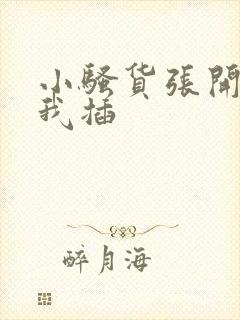 小騷货張開
我插
醉月海